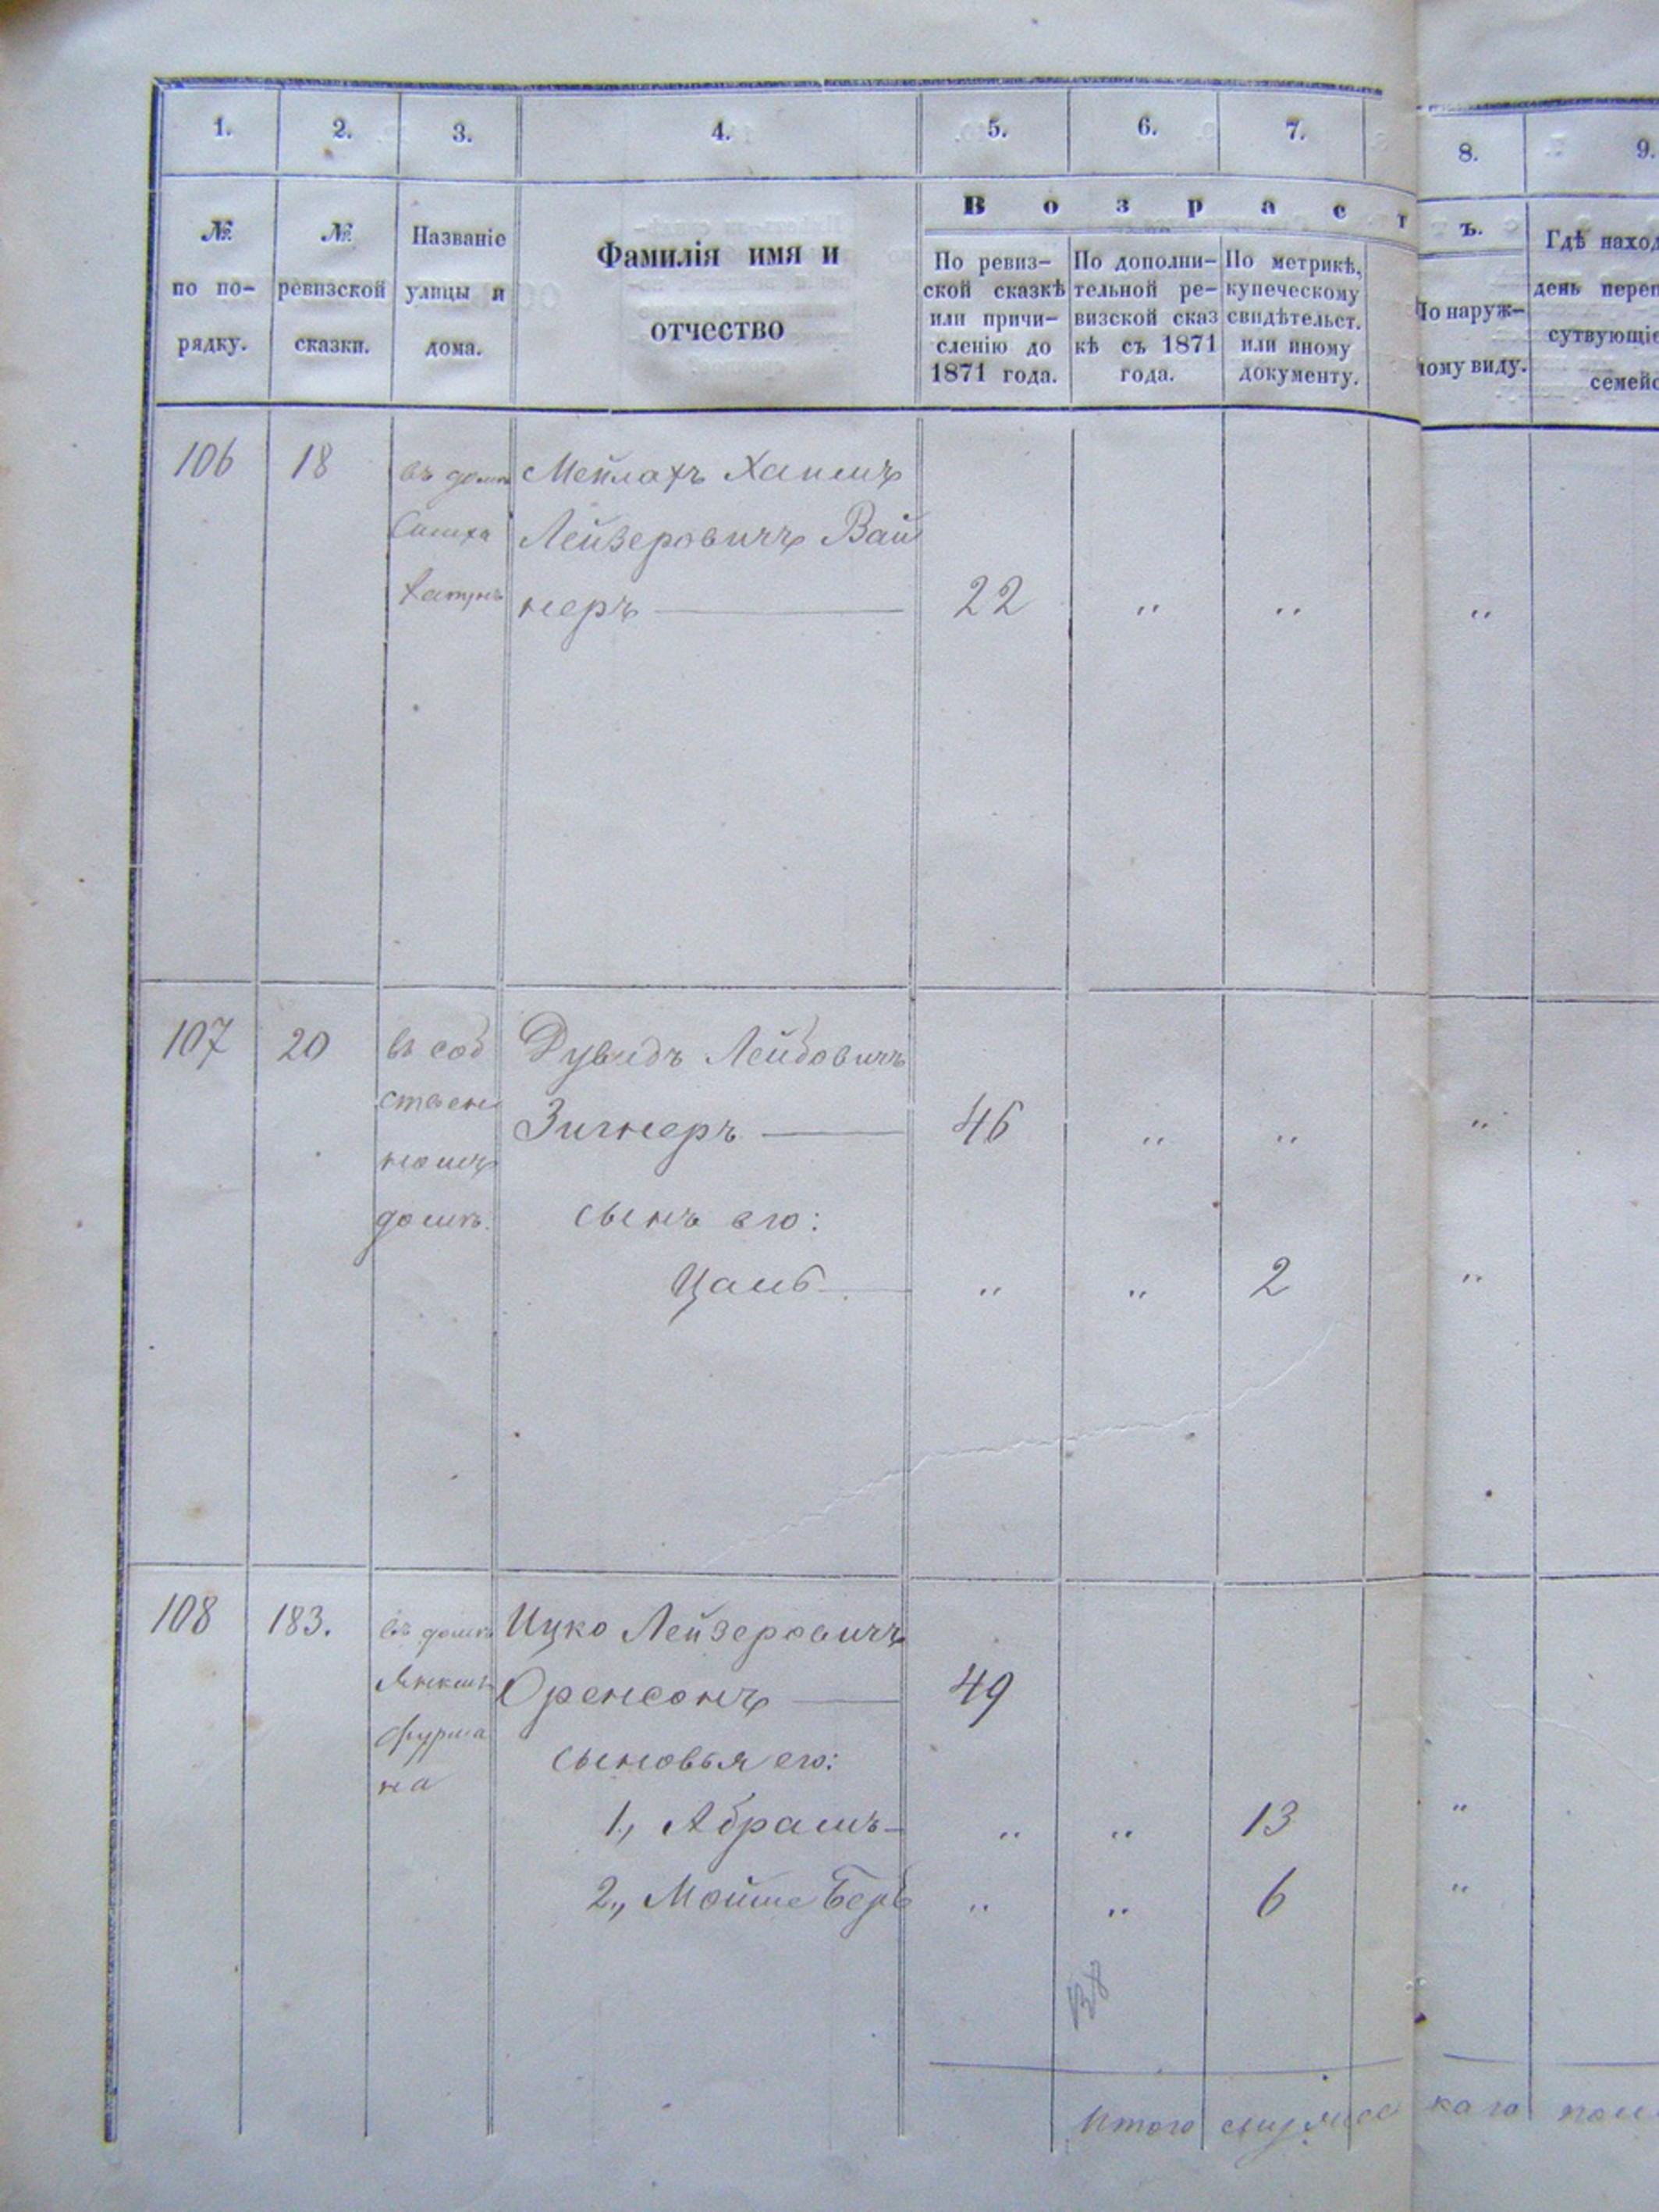 1. 2. 3. 4. 5. 6. 7. 8. 9.
№ по по-рядку.
№ ревизской сказки.
Названіе улицы и дома.
Фамилія имя и отчество
В о з р а с т ъ.
По ревиз-
ской сказкѣ
или причи-
сленію до
1871 года.
По дополни-
тельной ре-
визской сказ
кѣ съ 1871
года.
По метрикѣ,
купеческому
свидѣтельст.
или иному
документу.
По наруж-
ному виду.
Гдѣ наход
день переп
сутвующіе
семейс
106 18
въ домѣ
Симха
Мейлахъ Хаимъ
Лейзеровичъ Вай
неръ 22 " " "
107 20
въ соб
ствен
номъ
домѣ.
Дувидъ Лейбовичъ
Зигнеръ 46 " " "
сынъ его:
Цаль " " 2 "
108 183.
въ домѣ
фурма
на
Ицко Лейзеровичъ
Оренсонъ 49
сыновья его:
1., Абрамъ " " 13 "
2., Мойше Беръ " " 6 "
Итого мужескаго пол